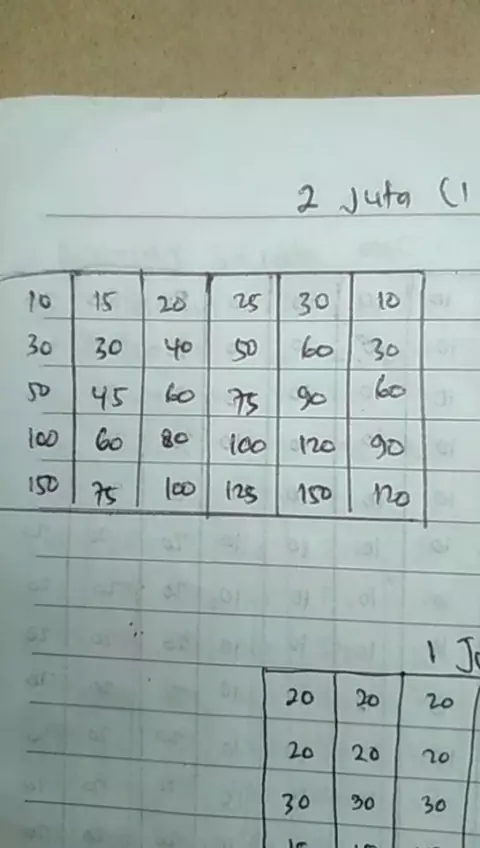 2 Juta (1
10 15 20 25 30 10
30 30 40 50 60 30
50 45 60 75 90 60
100 60 80 100 120 90
150 75 100 125 150 120
1 Ju
20 20 20
20 20 20
30 30 30